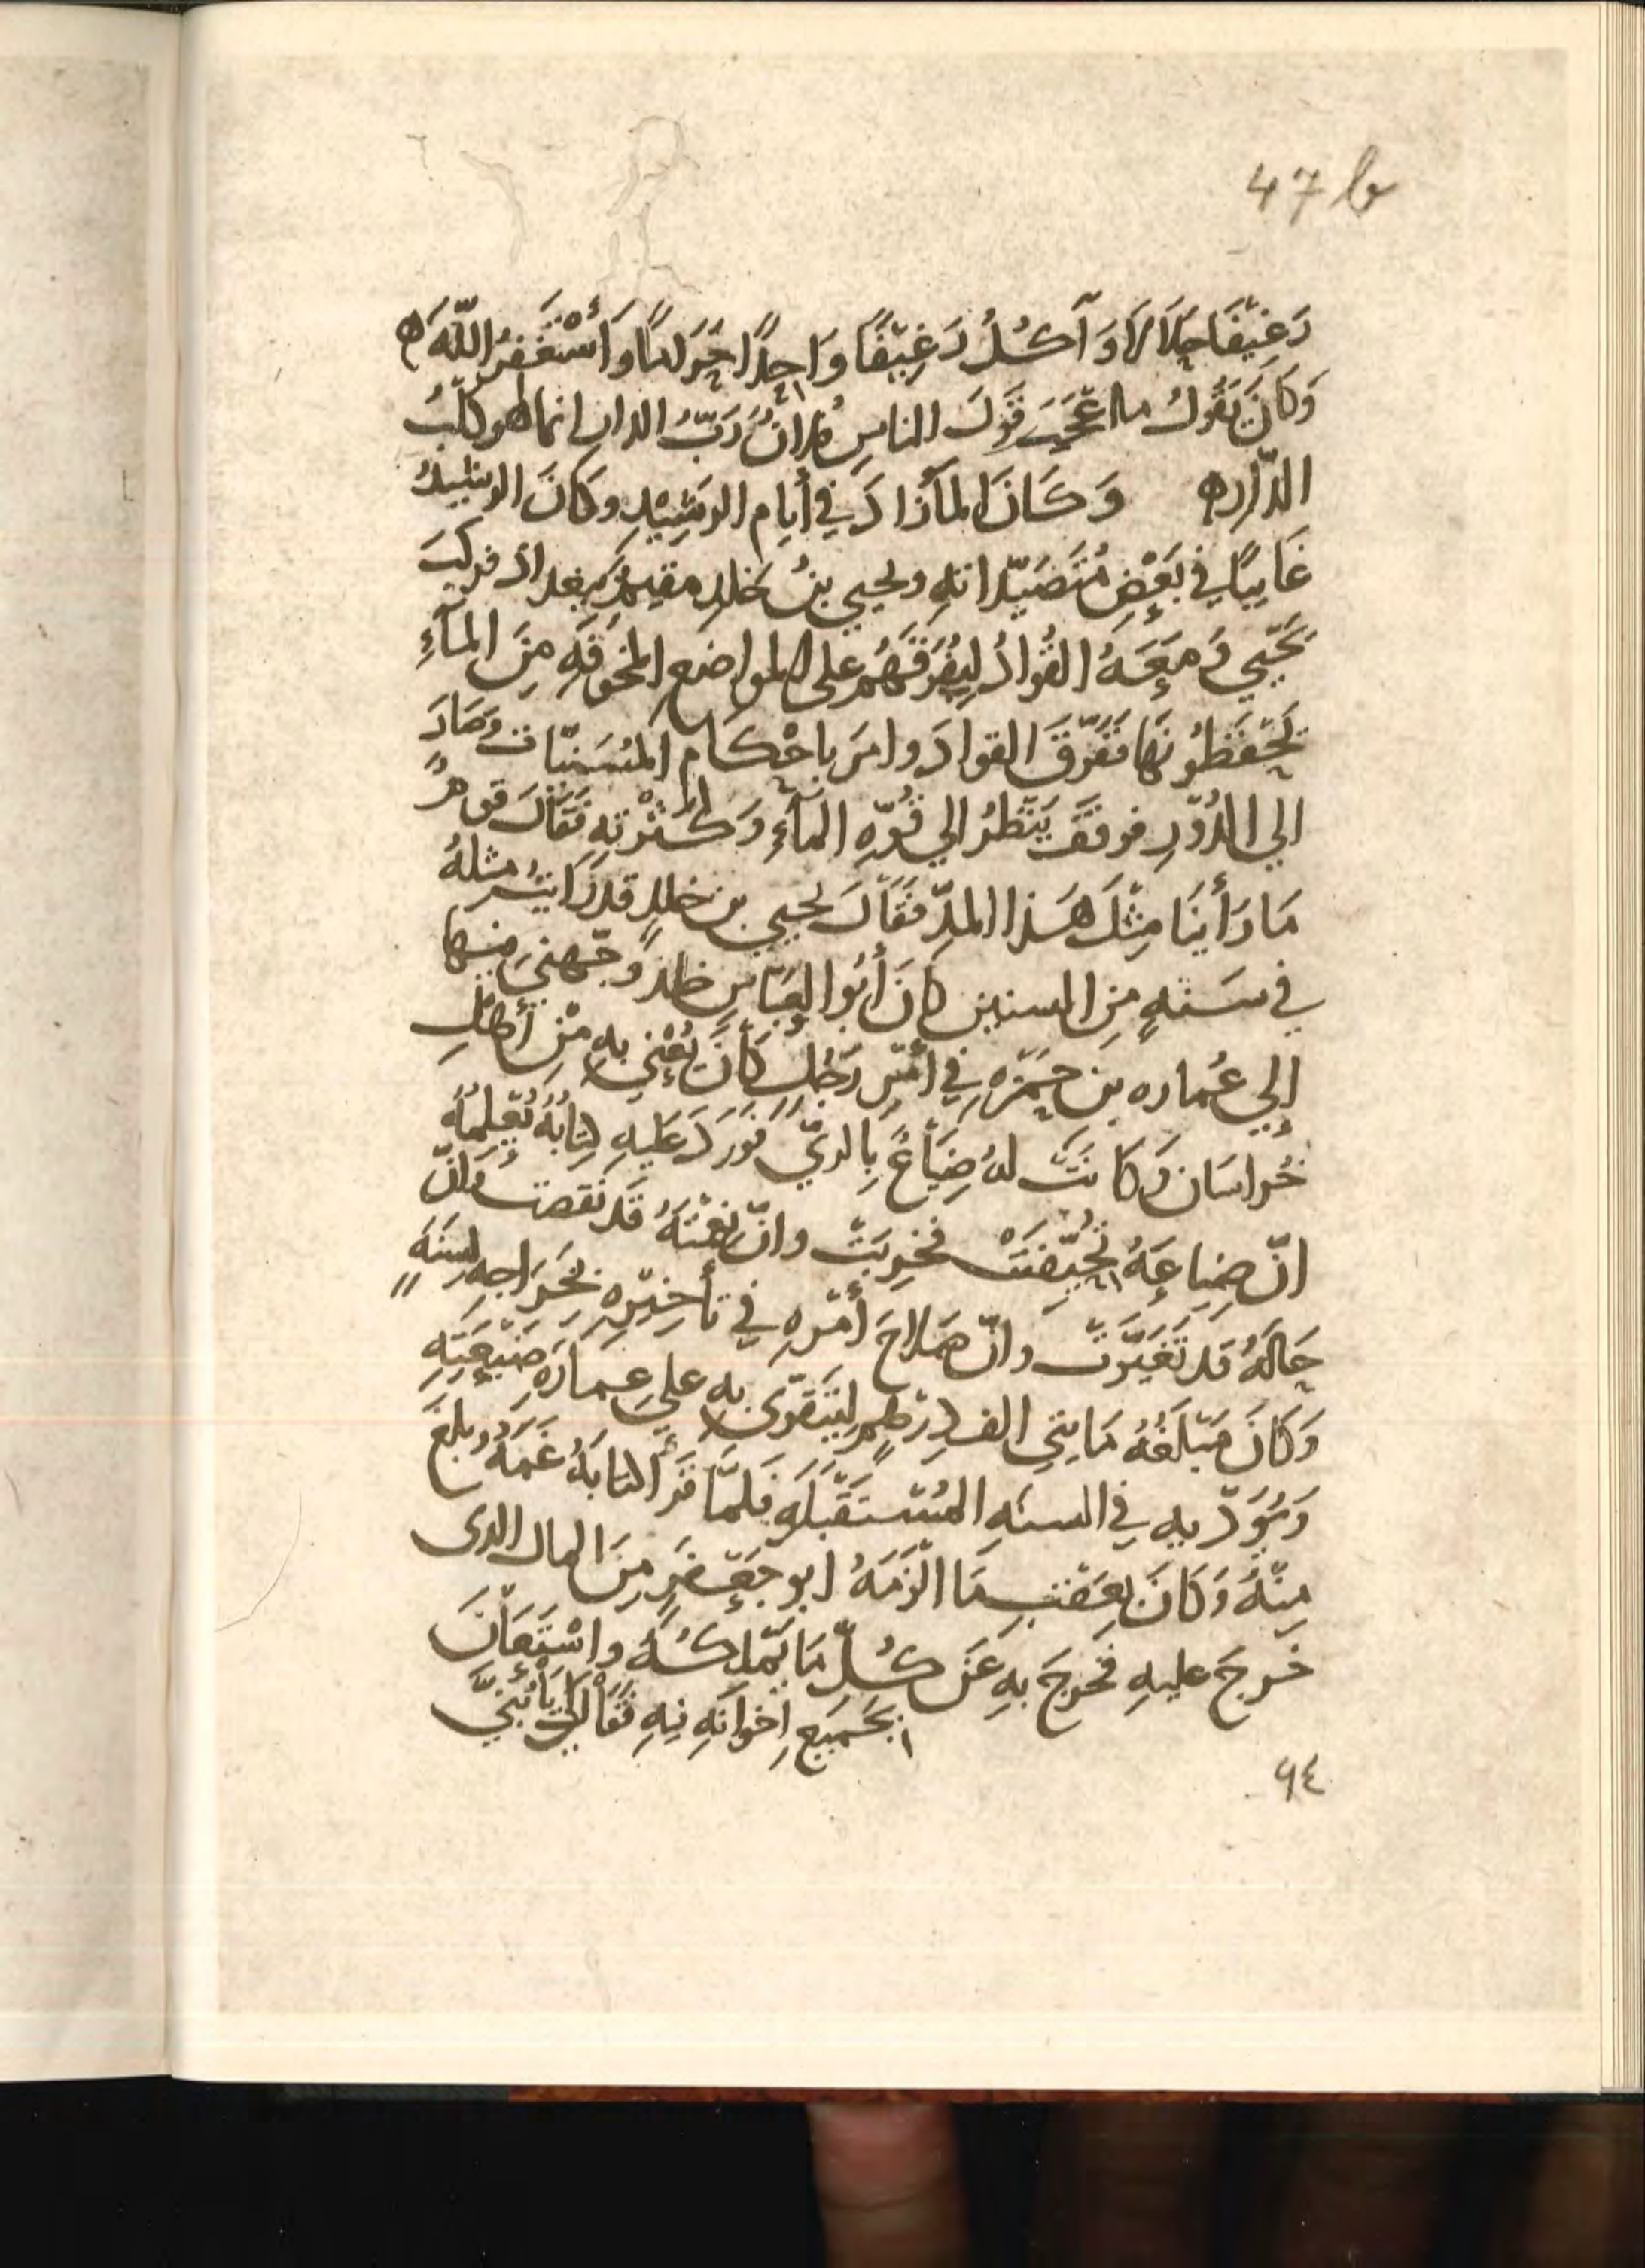 47 b
رَغِيْفًا حِلَالًا وَآكُلُ رَغِيْفًا وَاحِدًا حَرَامًا وَأَسْتَغْفِرُ اللّٰهَ ه
وَكَانَ يَقُولُ ما اعْجَبَ قَوْلَ الناسِ فلانٌ رَبُّ الدار انما هو كلْبُ
الدّار ه وَكَانَ المآزَادَ فِي أيامِ الرشِيْدِ وكانَ الرشيدُ
غَايبًا فِي بَعْضِ مُتَصَيَّداتهِ ويحيي بنُ خلدٍ مقيمٌ ببغداد فركبَ
يَحْيي وَمَعَهُ القُوادُ لِيُفَرّقَهُم على المواضع المخوفَهِ مِنَ المآءِ
يَحْفَظُونَهَا فَفَرّقَ القوادَ وامرَ باحْكَامِ المُسَنّيات وَصَارَ
الي الدُوّرِ فوقَفَ يَنْظرُ الي قُوّهِ المآءِ وَكَثْرتهِ فَقَالَ قومٌ
مَا رَأينَا مِثْلَ هَذا المدِّ فَقَالَ يحيي بن خلدٍ قد رَايتُ مثلهُ
في سَنهٍ مِنَ السنين كانَ أبُو العبّاس خلد وجّهني فيها
إلي عُماره بن حَمْزه فِي أمْرِ رَجُلٍ كَانَ يُعْنَي بهِ مِنْ أهْلِ
خُراسَان وَكانَتْ لهُ ضِيَاعٌ بِالريّ فَورَدَ عَليهِ كِتابُهُ يُعْلِمُهُ
انّ ضِياعَهُ تُحُيِّفَتْ فخرِبَتْ وانّ نِعْمتَهُ قد نَقصت وَانّ
حَالَهُ قد تَغَيّرَتْ وانّ صَلاحَ أمْرِهِ فِي تأخيْرِهِ بخَراجهِ لسَنَهٍ
وَكانَ مَبْلَغُهُ مَايتي الف دِرْهمٍ لِيَتَقَوّى بهِ على عِمارَهِ ضَيْعَتِهِ
وَيُؤَدّيهِ فِي السنهِ المُسْتَقْبَلَهِ فلمّا قَرَأ كتابَهُ غَمّهُ وبلغَ
مِنْهُ وَكَانَ بِعَقْبِ مَا الْزَمَهُ ابو جَعْفَرٍ مِنَ المال الذى
خَرجَ عليهِ فخرجَ بهِ عَن كُلّ مَا يَمْلِكُهُ واسْتَعَانَ
بجَميعِ اخْوانَهِ فِيهِ فَقالَ لي يَا بُنَيَّ
٩٤